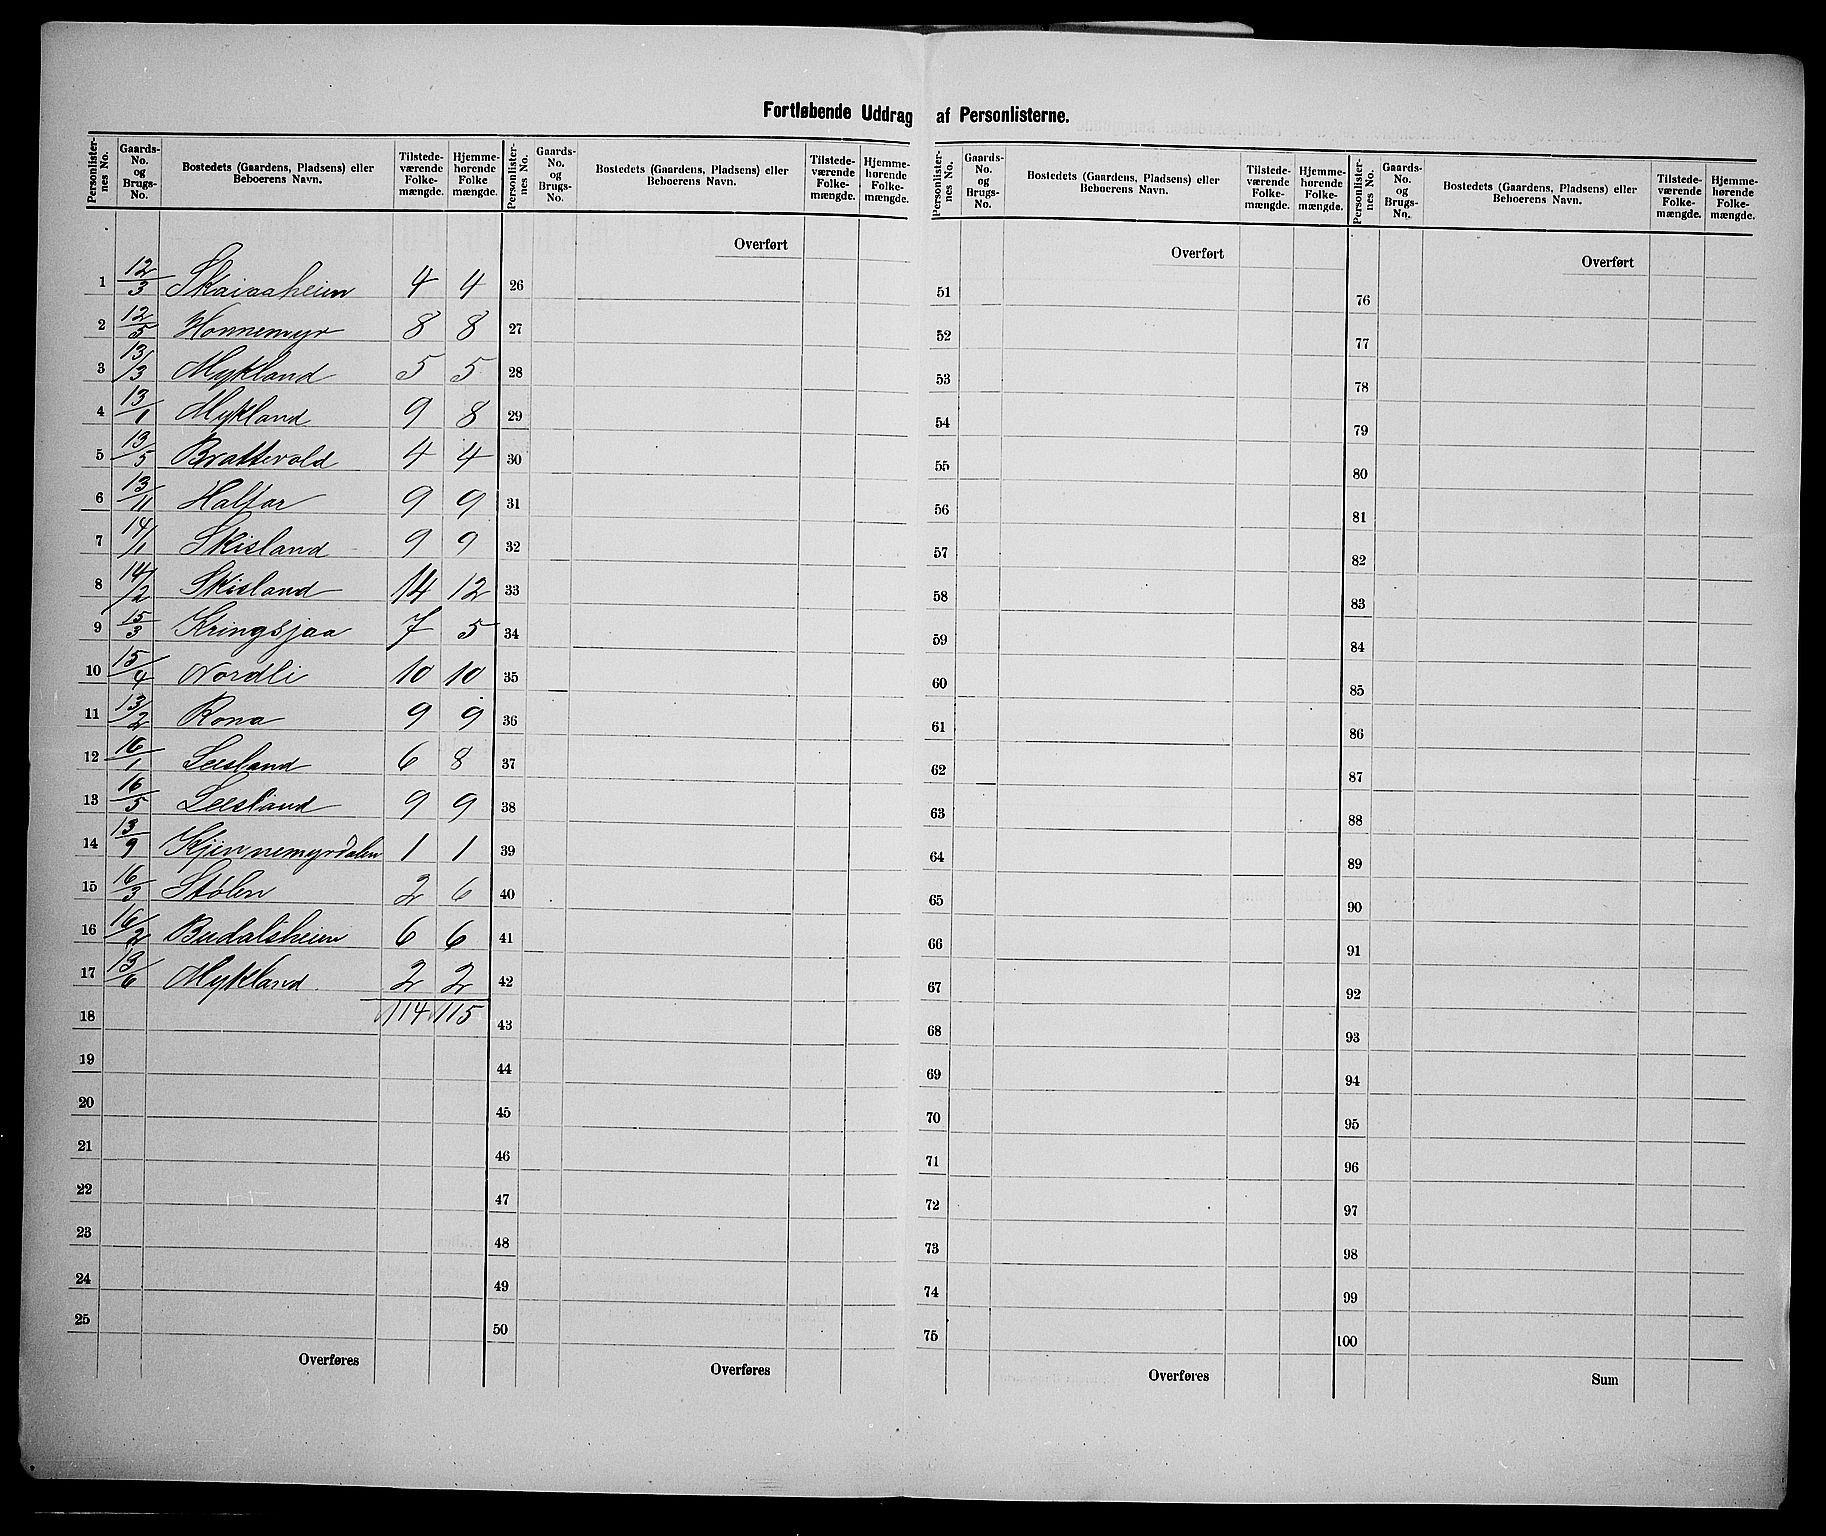 Fortløbende Uddrag af Personlisterne.
Personlisternes No. | Gaards-No. og Brugs-No. | Bostedets (Gaardens, Pladsens) eller Beboerens Navn. | Tilstedeværende Folkemængde. | Hjemmehørende Folkemængde.
1 12/3 Skaiaaheien 4 4
2 12/5 Honnemyr 8 8
3 13/3 Mykland 5 5
4 13/1 Mykland 9 8
5 13/5 Brattevold 4 4
6 13/11 Haltar 9 9
7 14/1 Skisland 9 9
8 14/2 Skisland 14 12
9 15/3 Kringsjaa 7 5
10 15/4 Nordli 10 10
11 13/2 Rona 9 9
12 16/1 Leesland 6 8
13 16/5 Leesland 9 9
14 13/9 Kjinnemyrdalen 1 1
15 16/3 Stølen 2 6
16 16/2 Budalsheien 6 6
17 13/6 Mykland. 2 2
18 114 115
19
20
21
22
23
24
25
Overføres
Personlisternes No. | Gaards-No. og Brugs-No. | Bostedets (Gaardens, Pladsens) eller Beboerens Navn. | Tilstedeværende Folkemængde. | Hjemmehørende Folkemængde.
Overført
26
27
28
29
30
31
32
33
34
35
36
37
38
39
40
41
42
43
44
45
46
47
48
49
50
Overføres
Personlisternes No. | Gaards-No. og Brugs-No. | Bostedets (Gaardens, Pladsens) eller Beboerens Navn. | Tilstedeværende Folkemængde. | Hjemmehørende Folkemængde.
Overført
51
52
53
54
55
56
57
58
59
60
61
62
63
64
65
66
67
68
69
70
71
72
73
74
75
Overføres
Personlisternes No. | Gaards-No. og Brugs-No. | Bostedets (Gaardens, Pladsens) eller Beboerens Navn. | Tilstedeværende Folkemængde. | Hjemmehørende Folkemængde.
Overført
76
77
78
79
80
81
82
83
84
85
86
87
88
89
90
91
92
93
94
95
96
97
98
99
100
Sum